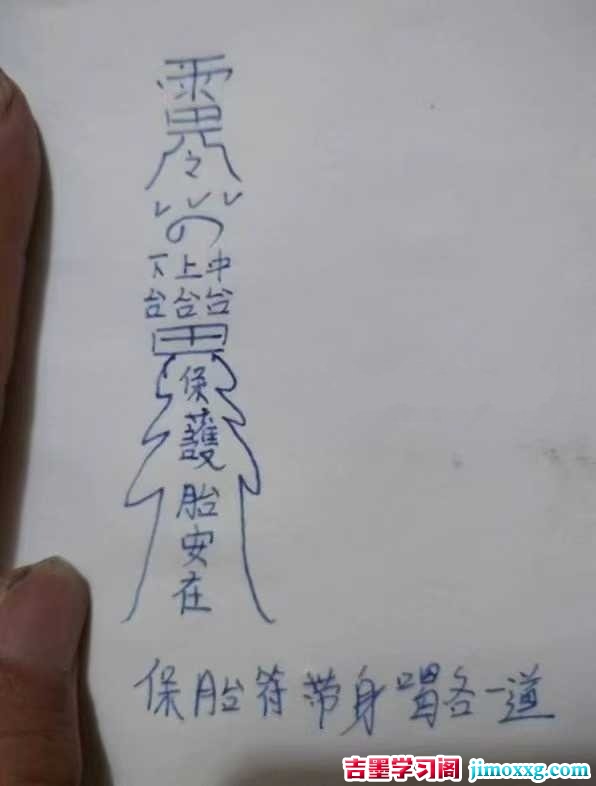 下 上 中
台 台 台
保
護
胎
安
在
保胎符带身喝各一道
吉墨学习阁 jimoxxg.com